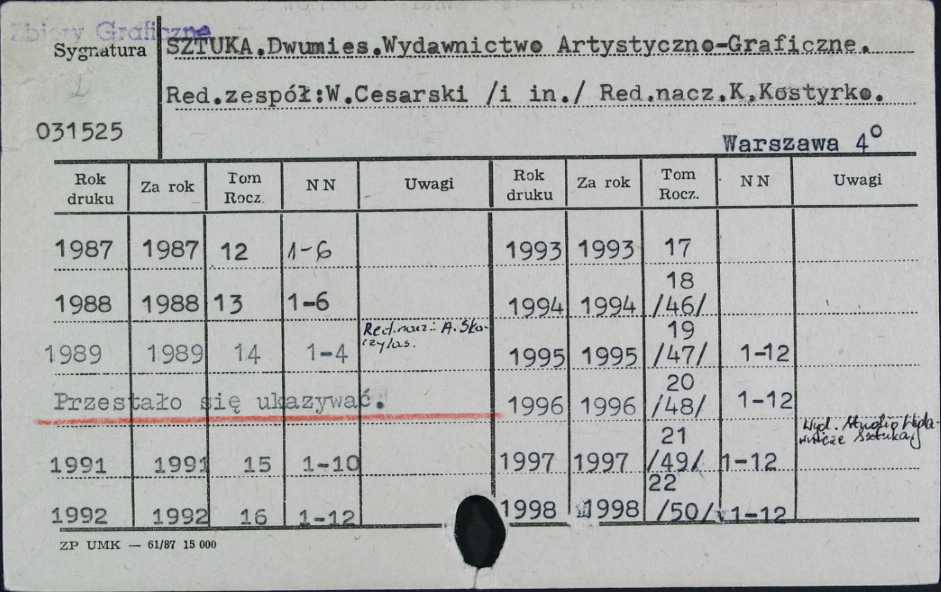 Zbiory Graficzne
Sygnatura
SZTUKA.Dwumies.Wydawnictwo Artystyczno-Graficzne.
Red.zespół:W.Cesarski /i in./ Red.nacz.K.Kostyrko.
031525
Warszawa 4°
Rok druku Za rok Tom Rocz. NN Uwagi
1987 1987 12 1-6
1988 1988 13 1-6
1989 1989 14 1-4 Red.nacz: A. Sko-
czylas.
Przestało się ukazywać.
1991 1991 15 1-10
1992 1992 16 1-12
Rok druku Za rok Tom Rocz. NN Uwagi
1993 1993 17
1994 1994 18 /46/
1995 1995 19 /47/ 1-12
1996 1996 20 /48/ 1-12
1997 1997 21 /49/ 1-12 Wyd. Studio Wyda-
wnicze Sztuka
1998 1998 22 /50/ 1-12
ZP UMK — 61/87 15 000